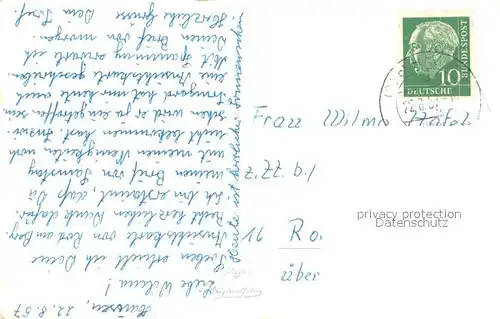 Hausen, 22.8.57
Liebe Wilma!
Soeben erhielt ich Deine
Ansichtskarte von Rod am Berg.
Recht herzlichen Dank dafür.
Ich bin erstaunt, daß Du
meinen Brief vom Samstag
mit meinen Neuigkeiten noch
nicht bekommen hast. Inzwi-
schen wird er ja eingetroffen sein
Irmgard hat mir heute auch
eine Ansichtskarte geschrieben.
Mit Spannung erwarte ich
Deinen Brief von morgen.
Herzliche Grüsse
Dein Josef.
Heute ist herrlicher
Frau Wilma
z. Zt. b./
16 Ro.
über
DEUTSCHE
BUNDESPOST
10
22.8.57
privacy protection
Datenschutz